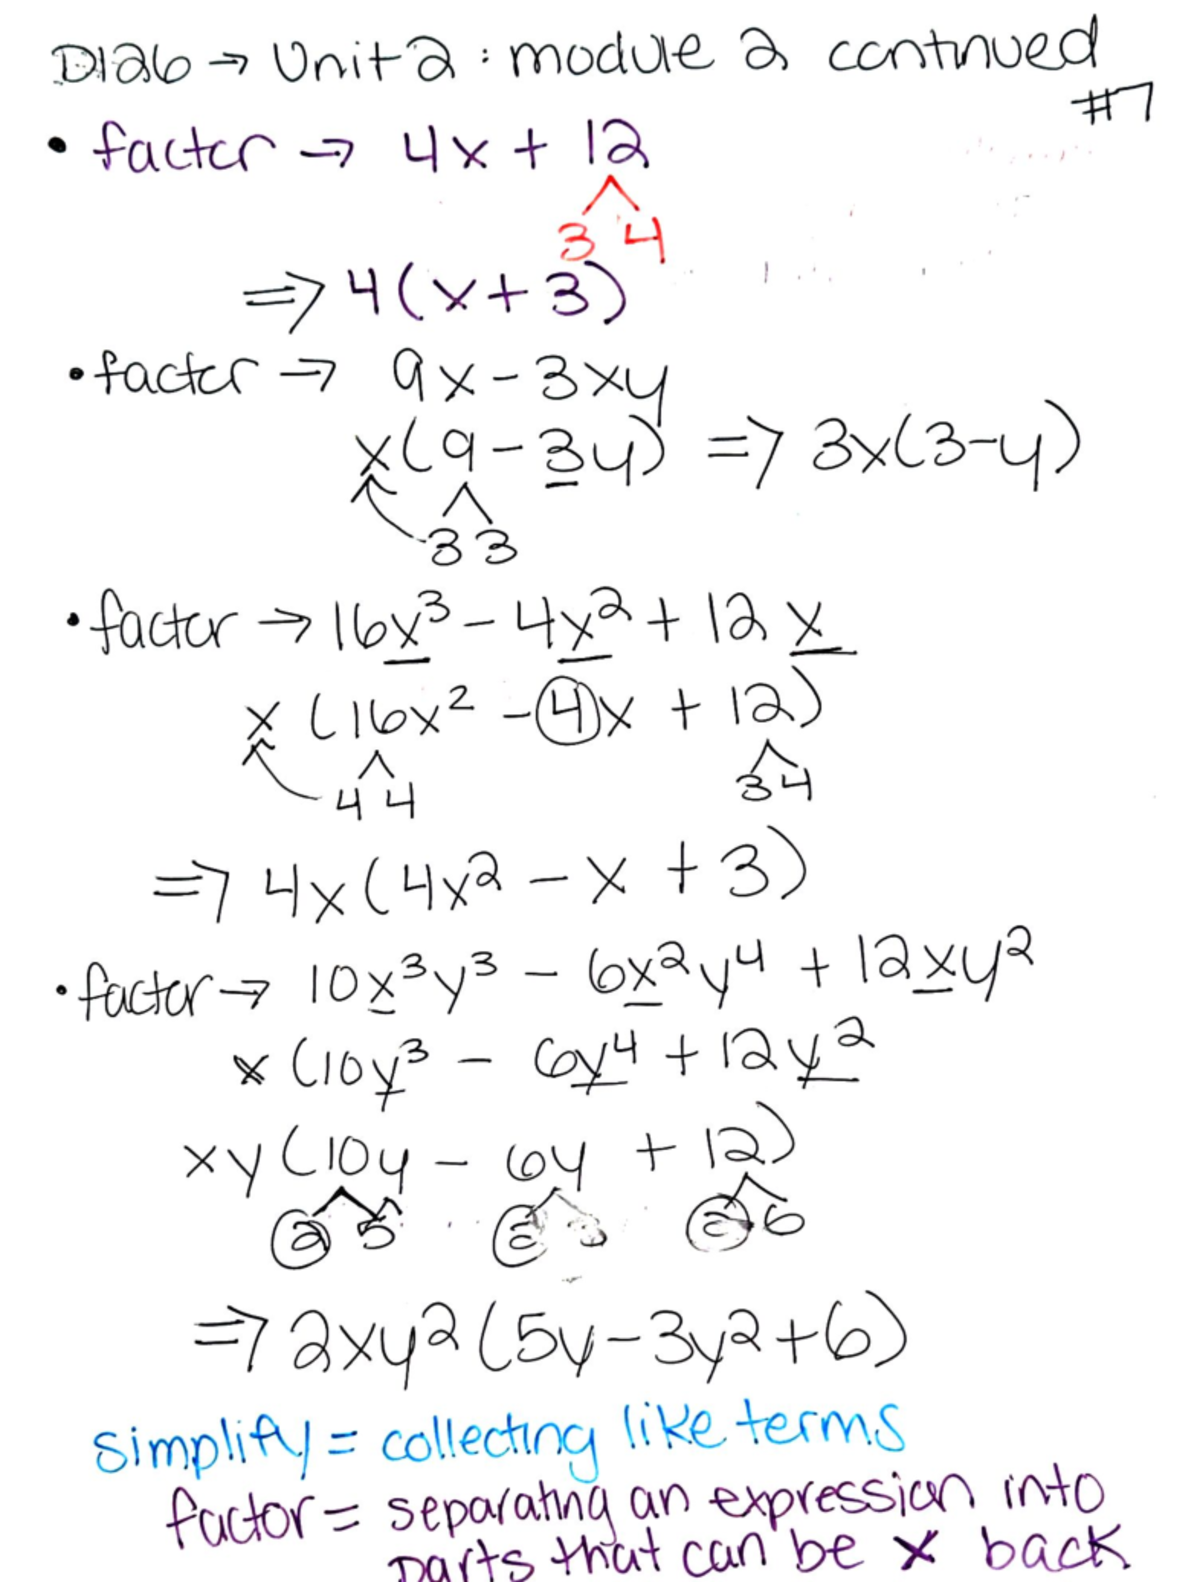 D126 → Unit 2 : module 2 continued
#7
• factor → 4x + 12
3 4
⇒ 4(x + 3)
• factor → 9x - 3xy
x(9 - 3y) ⇒ 3x(3-y)
3 3
• factor → 16x³ - 4x² + 12x
x(16x² - 4x + 12)
4 4 3 4
⇒ 4x(4x² - x + 3)
• factor → 10x³y³ - 6x²y⁴ + 12xy²
x(10y³ - 6y⁴ + 12y²
xy(10y - 6y + 12)
2 5 2 3 2 6
⇒ 2xy²(5y-3y²+6)
simplify = collecting like terms
factor = separating an expression into
parts that can be x back